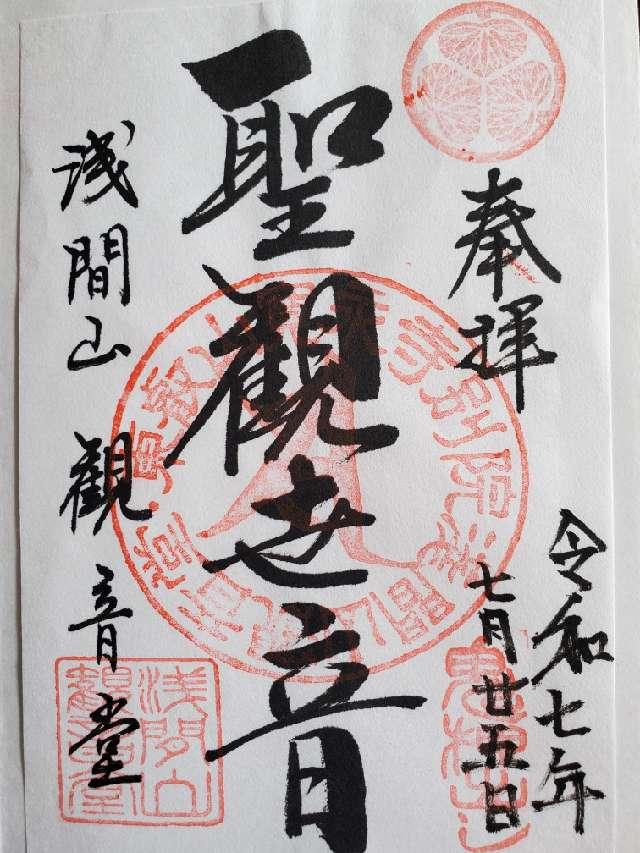 奉拝
令和七年
七月廿五日
聖觀世音
浅間山觀音堂
浅間山
観音堂